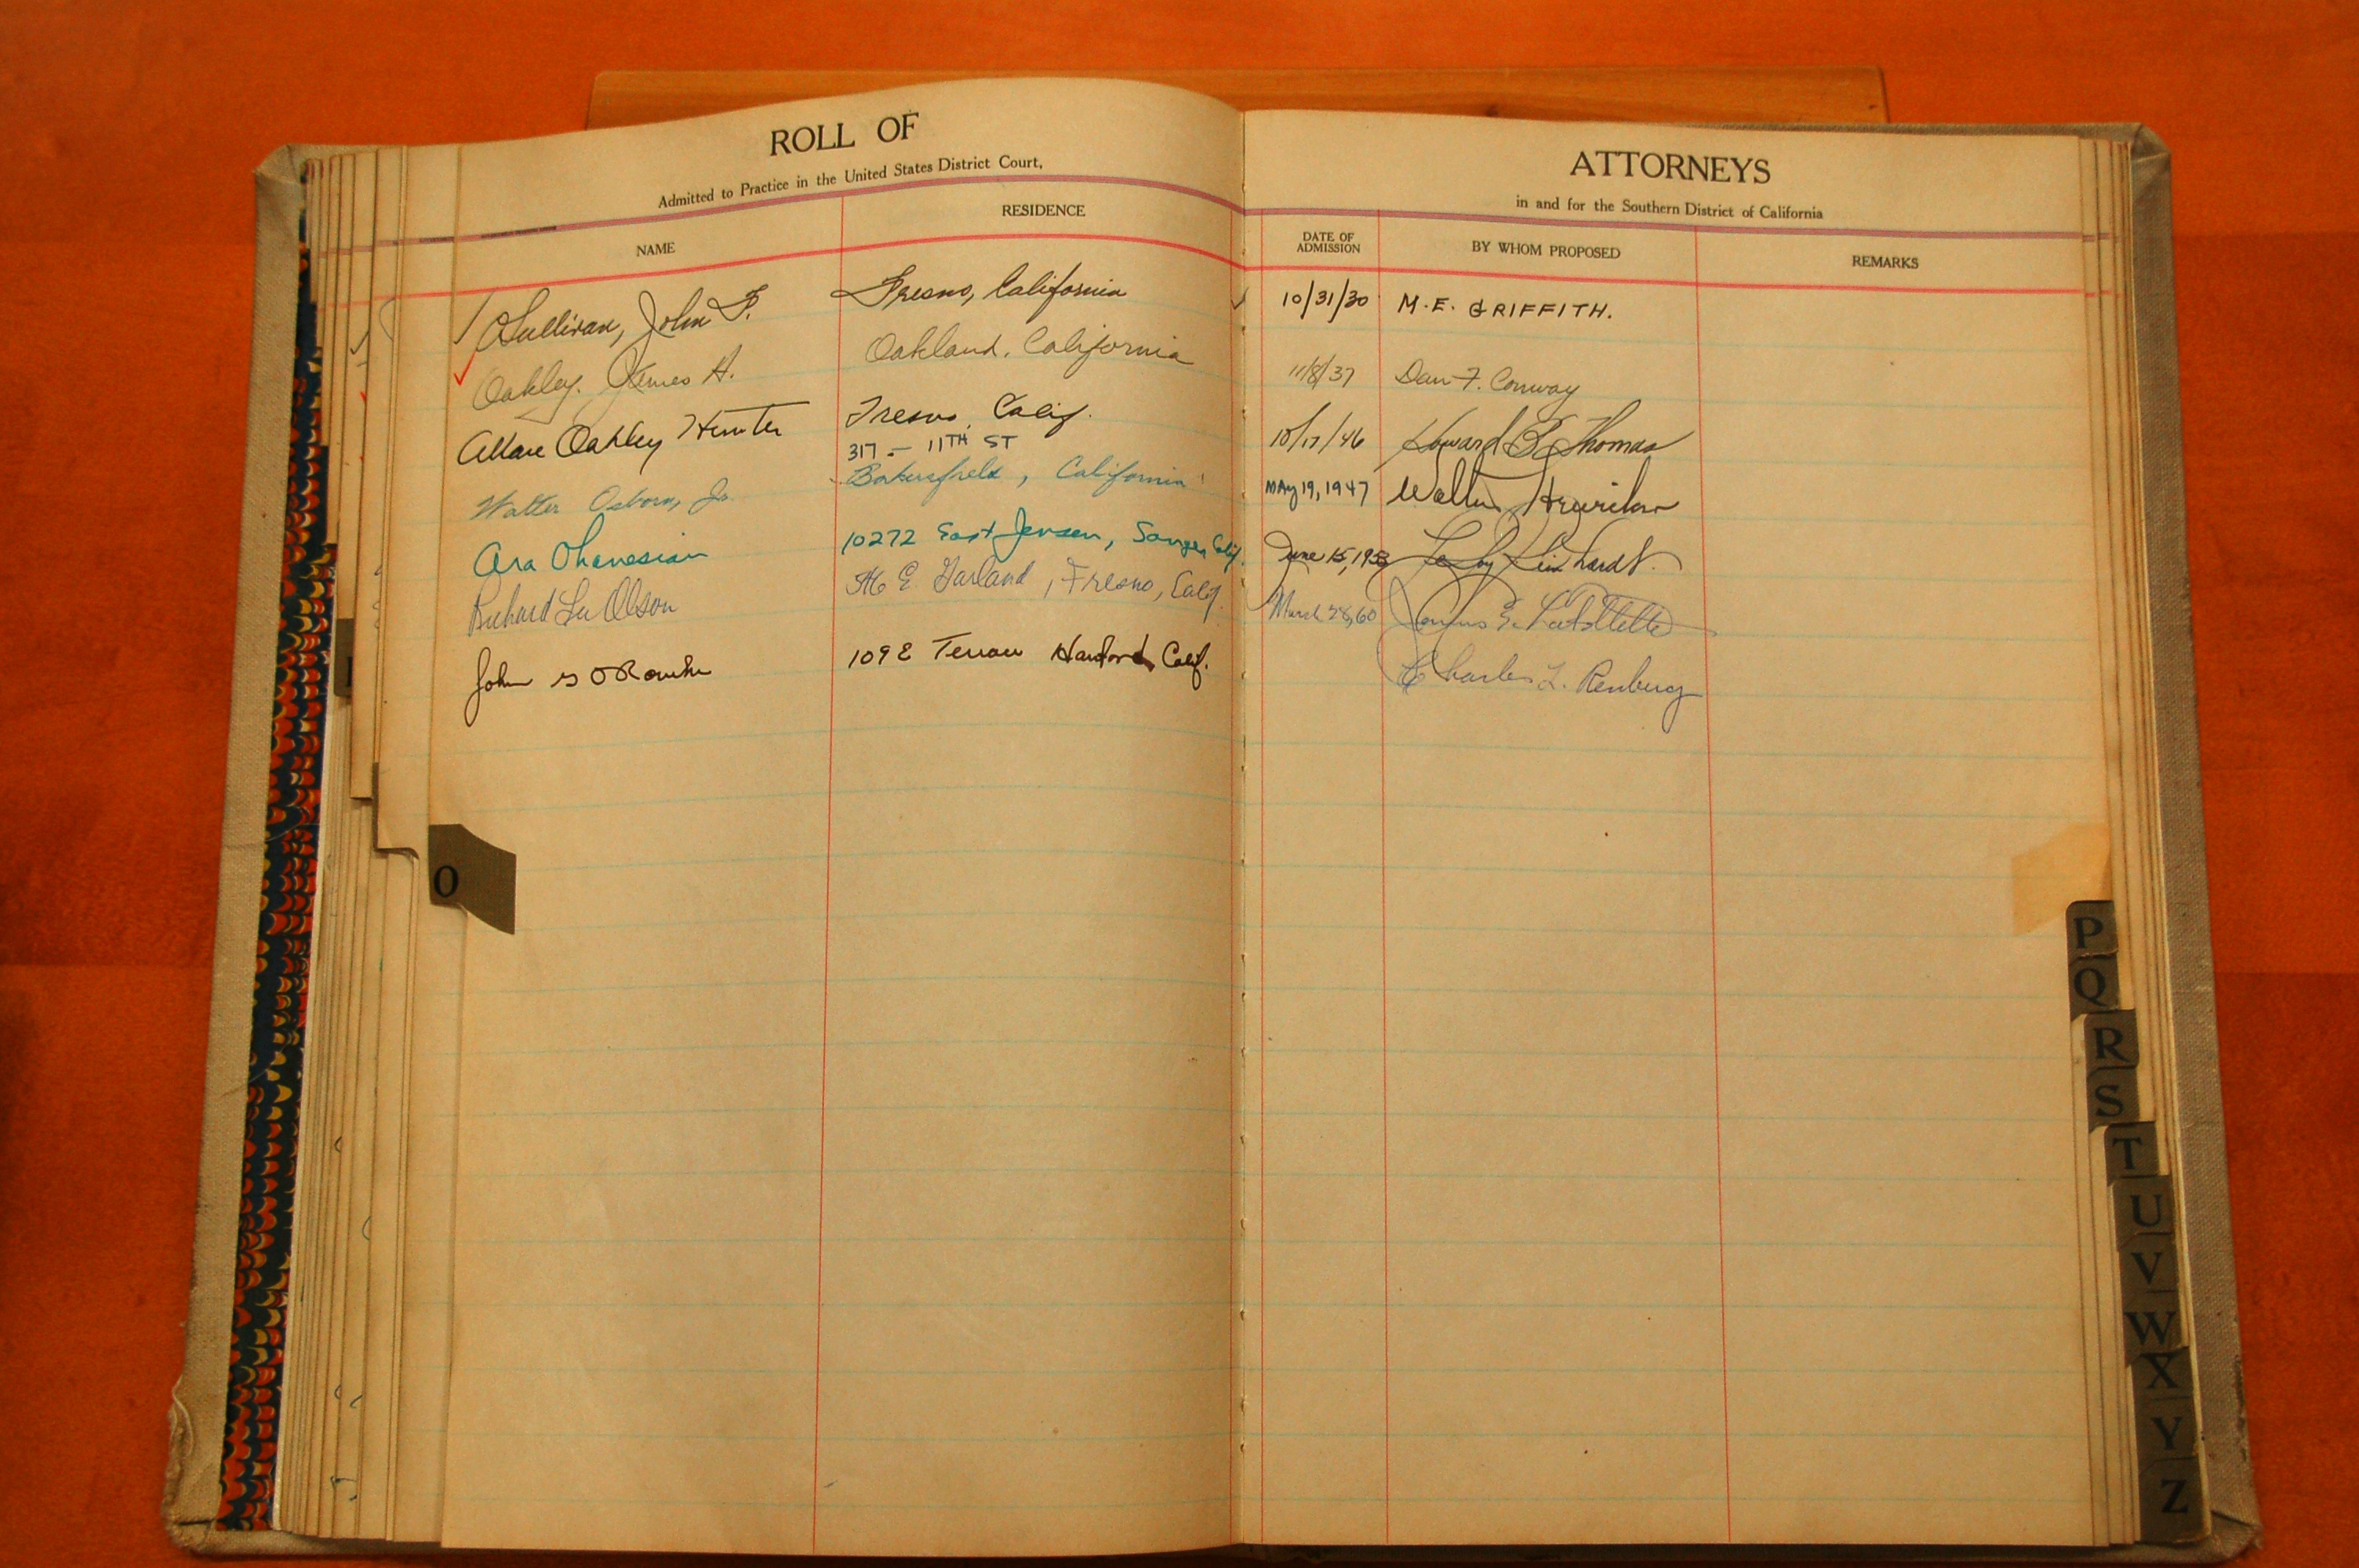 ROLL OF
Admitted to Practice in the United States District Court,
NAME
RESIDENCE
ATTORNEYS
in and for the Southern District of California
DATE OF
ADMISSION
BY WHOM PROPOSED
REMARKS
O'Sullivan, John F. Fresno, California 10/31/30 M. E. GRIFFITH.
Oakley, James H. Oakland, California 11/8/37 Dan F. Conway
Allan Oakley Hunter Fresno, Calif. 10/17/46 Howard B. Thomas
317 - 11TH ST
Walter Osborn, Jr. Bakersfield, California MAY 19, 1947 Walter
Ara Ohanesian 10272 East Jensen, Sanger, Calif. June 15, 1953
Richard Lee Olson E. Garland, Fresno, Calif. March 28, 60 E. LaFollette
John O'Rourke 109 E Terrace Hanford, Calif. Charles L. Renberg
O
P
Q
R
S
T
U
V
W
X
Y
Z